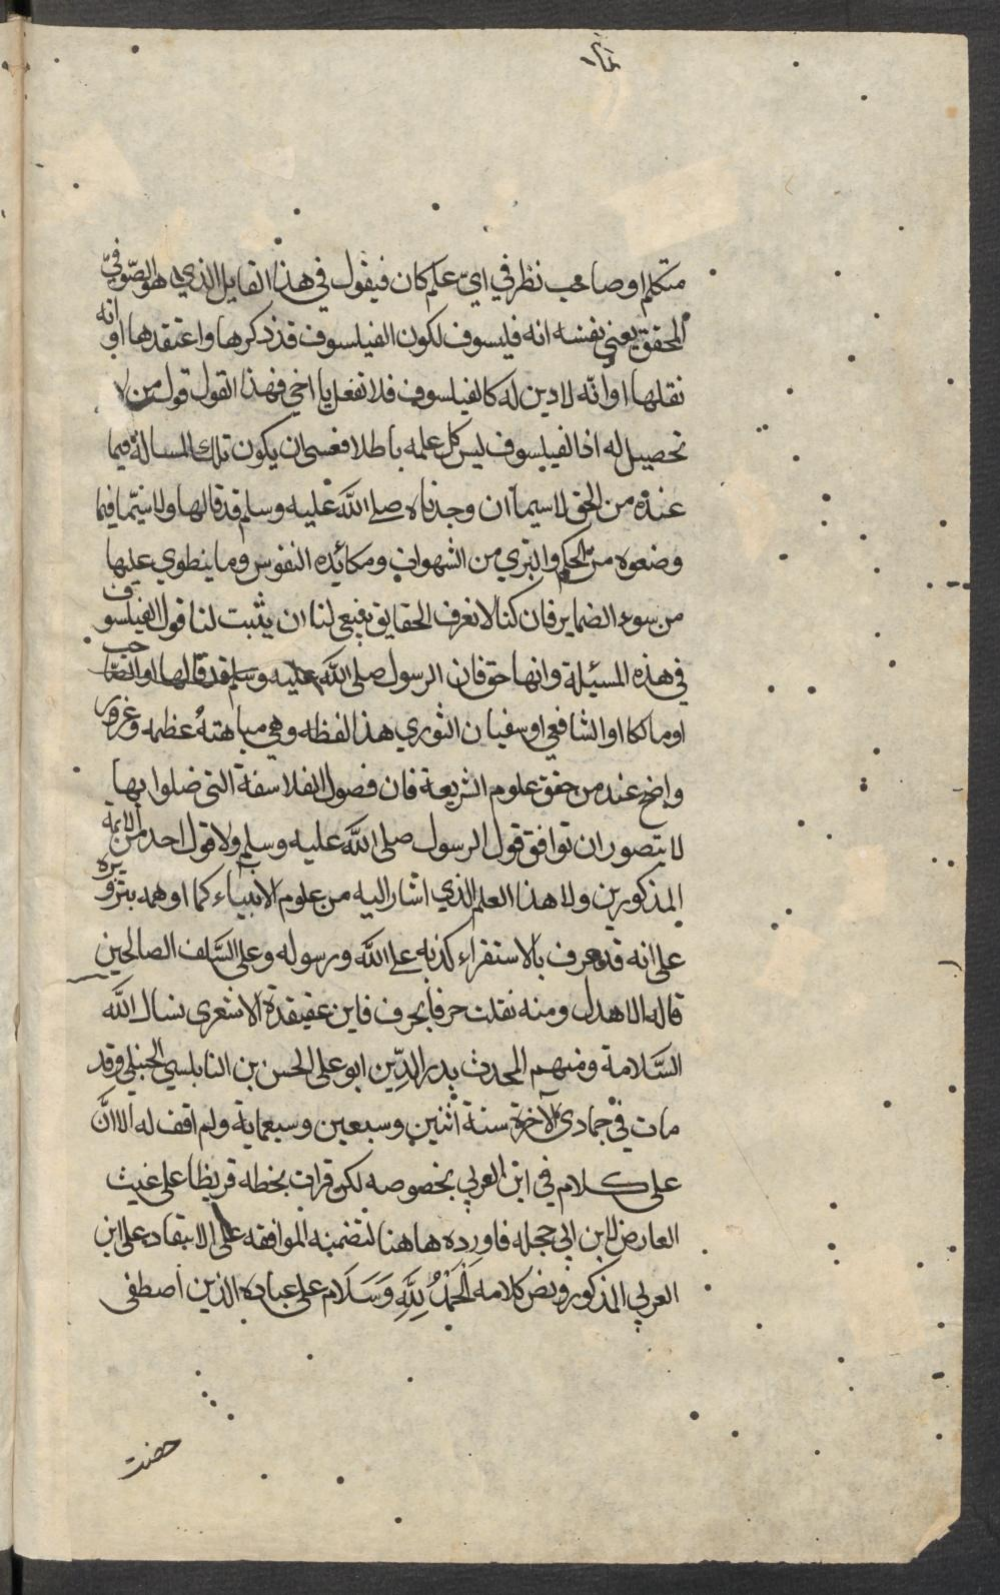 متكلم او صاحب نظر في اي علم كان فيقول في هذا القايل الذي هو الصوفي
المحقق يعني نفسه انه فليسوف لكون الفيلسوف قد ذكرها واعتقدها او انه
نقلها او انه لا دين له كالفيلسوف فلا تفعل يا اخي فهذا القول قول من لا
تحصيل له اذ الفيلسوف ليس كل علمه باطلا فعسى ان يكون تلك المسالة فيما
عنده من الحق لا سيما ان وجدناه صلى الله عليه وسلم قد قالها ولا سيما فيما
وضعوه من الحكم والتبري من الشهوات ومكائده النفوس وما ينطوي عليها
من سوء الضماير فان كنا لا نعرف الحقايق ينبغي لنا ان يثبت لنا قول الفيلسوف
في هذه المسئلة وانها حق فان الرسول صلى الله عليه وسلم قد قالها او الصاحب
او مالكا او الشافعي او سفيان الثوري هذا لفظه وهي مباهتة عظمه وغرور
واضح عند من حقق علوم الشريعة فان فصول الفلاسفة التي ضلوا بها
لا يتصور ان توافق قول الرسول صلى الله عليه وسلم ولا قول احد من الايمة
المذكورين ولا هذا العلم الذي اشار اليه من علوم الانبياء كما اوهمه بتزويره
على انه قد عرف بالاستقراء كذبه على الله ورسوله وعلى السلف الصالحين
قاله الاهدل ومنه نقلت حرفا بحرف فاين عقيقدة الاشعري نسال الله
السلامة ومنهم المحدث بدر الدين ابو علي الحسن بن النابلسي الحنبلي وقد
مات في جمادى الآخرة سنة اثنين وسبعين وسبعماية ولم اقف له الاان
على كلام في ابن العربي بخصوصه لكن قرات بخطه قريظا على غيث
العارض لابن ابي حجله فاورده هاهنا لتضمنه الموافقه على الانتقاد على ابن
العربي المذكور ونص كلامه الحمد لله وسلام على عباده الذين اصطفى